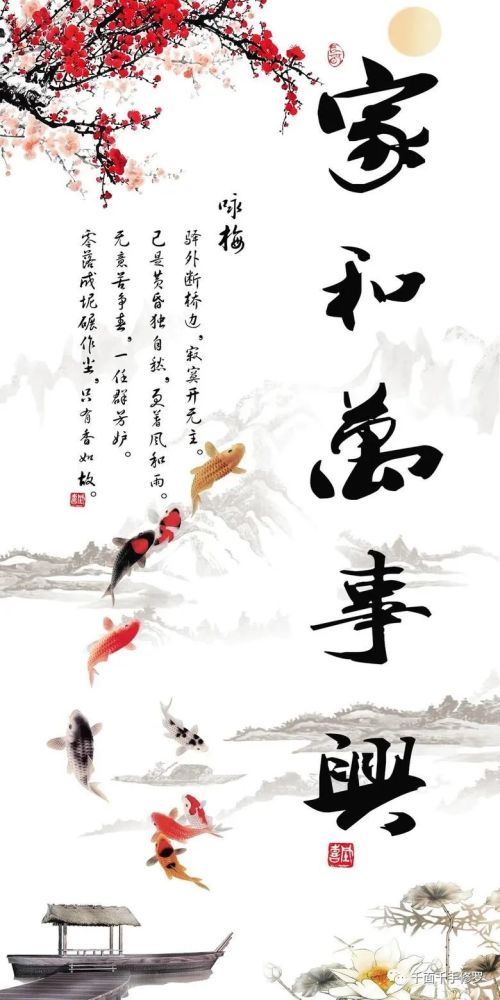 家和萬事興
咏梅
驿外断桥边，寂寞开无主。
已是黄昏独自愁，更着风和雨。
无意苦争春，一任群芳妒。
零落成泥碾作尘，只有香如故。
千面千手修罗